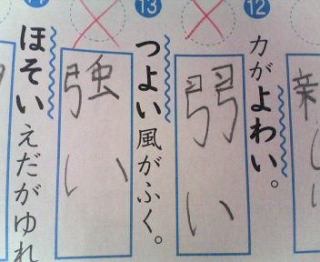 新しい
⑫
力がよわい。
弱い
⑬
つよい風がふく。
強い
ほそいえだがゆれ